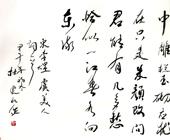 中雕栏玉砌应犹
在只是朱颜改问
君能有几多愁
恰似一江春水向
东流
李煜虞美人
词一首
甲午年